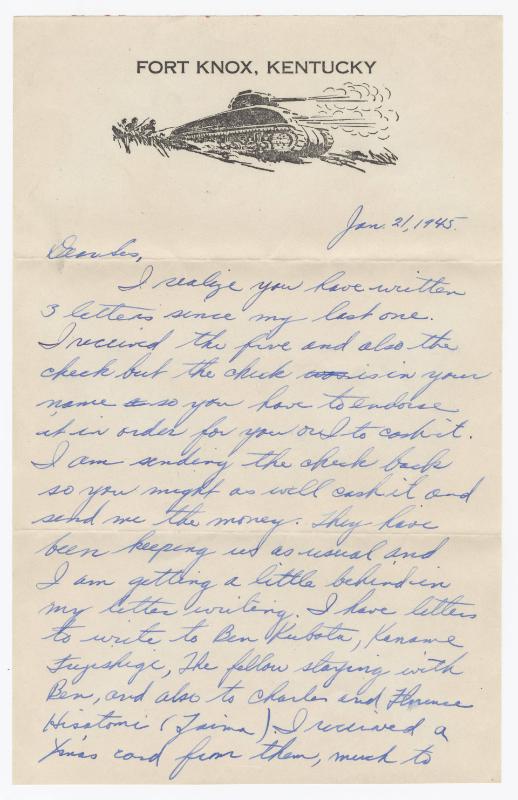 FORT KNOX, KENTUCKY
Jan. 21, 1945.
Dear Sis,
I realize you have written
3 letters since my last one.
I received the five and also the
check but the check is in your
name so you have to endorse
it in order for you or I to cash it.
I am sending the check back
so you might as well cash it and
send me the money. They have
been keeping us as usual and
I am getting a little behind in
my letter writing. I have letters
to write to Ben Kubota, Kaname
Fujishige, The fellow staying with
Ben, and also to Charles and Florence
Hisatomi (Tajima). I received a
Xmas card from them, much to